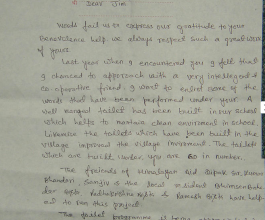 Dear Jim
Words fail us express our gratitude to your
benevolence help. we always respect such a great work
of yours
Last year when I encountered you I felt that
I chanced to approach with a very intelligent &
co-operative friend. I want to enlist some of the
works that have been performed under your. A
well managed toilet has been built in our School
which helps to maintain clean environment in school.
Likewise the toilets which have been built in the
village improved the village environment. The toilets
which are built under you are 60 in number.
The friends of Himalayan aid Dipak Sir, Kumar
Bhandari Sanjiv & the local resident
& Ramesh have help
ed to run this project.
The toilet programme is being